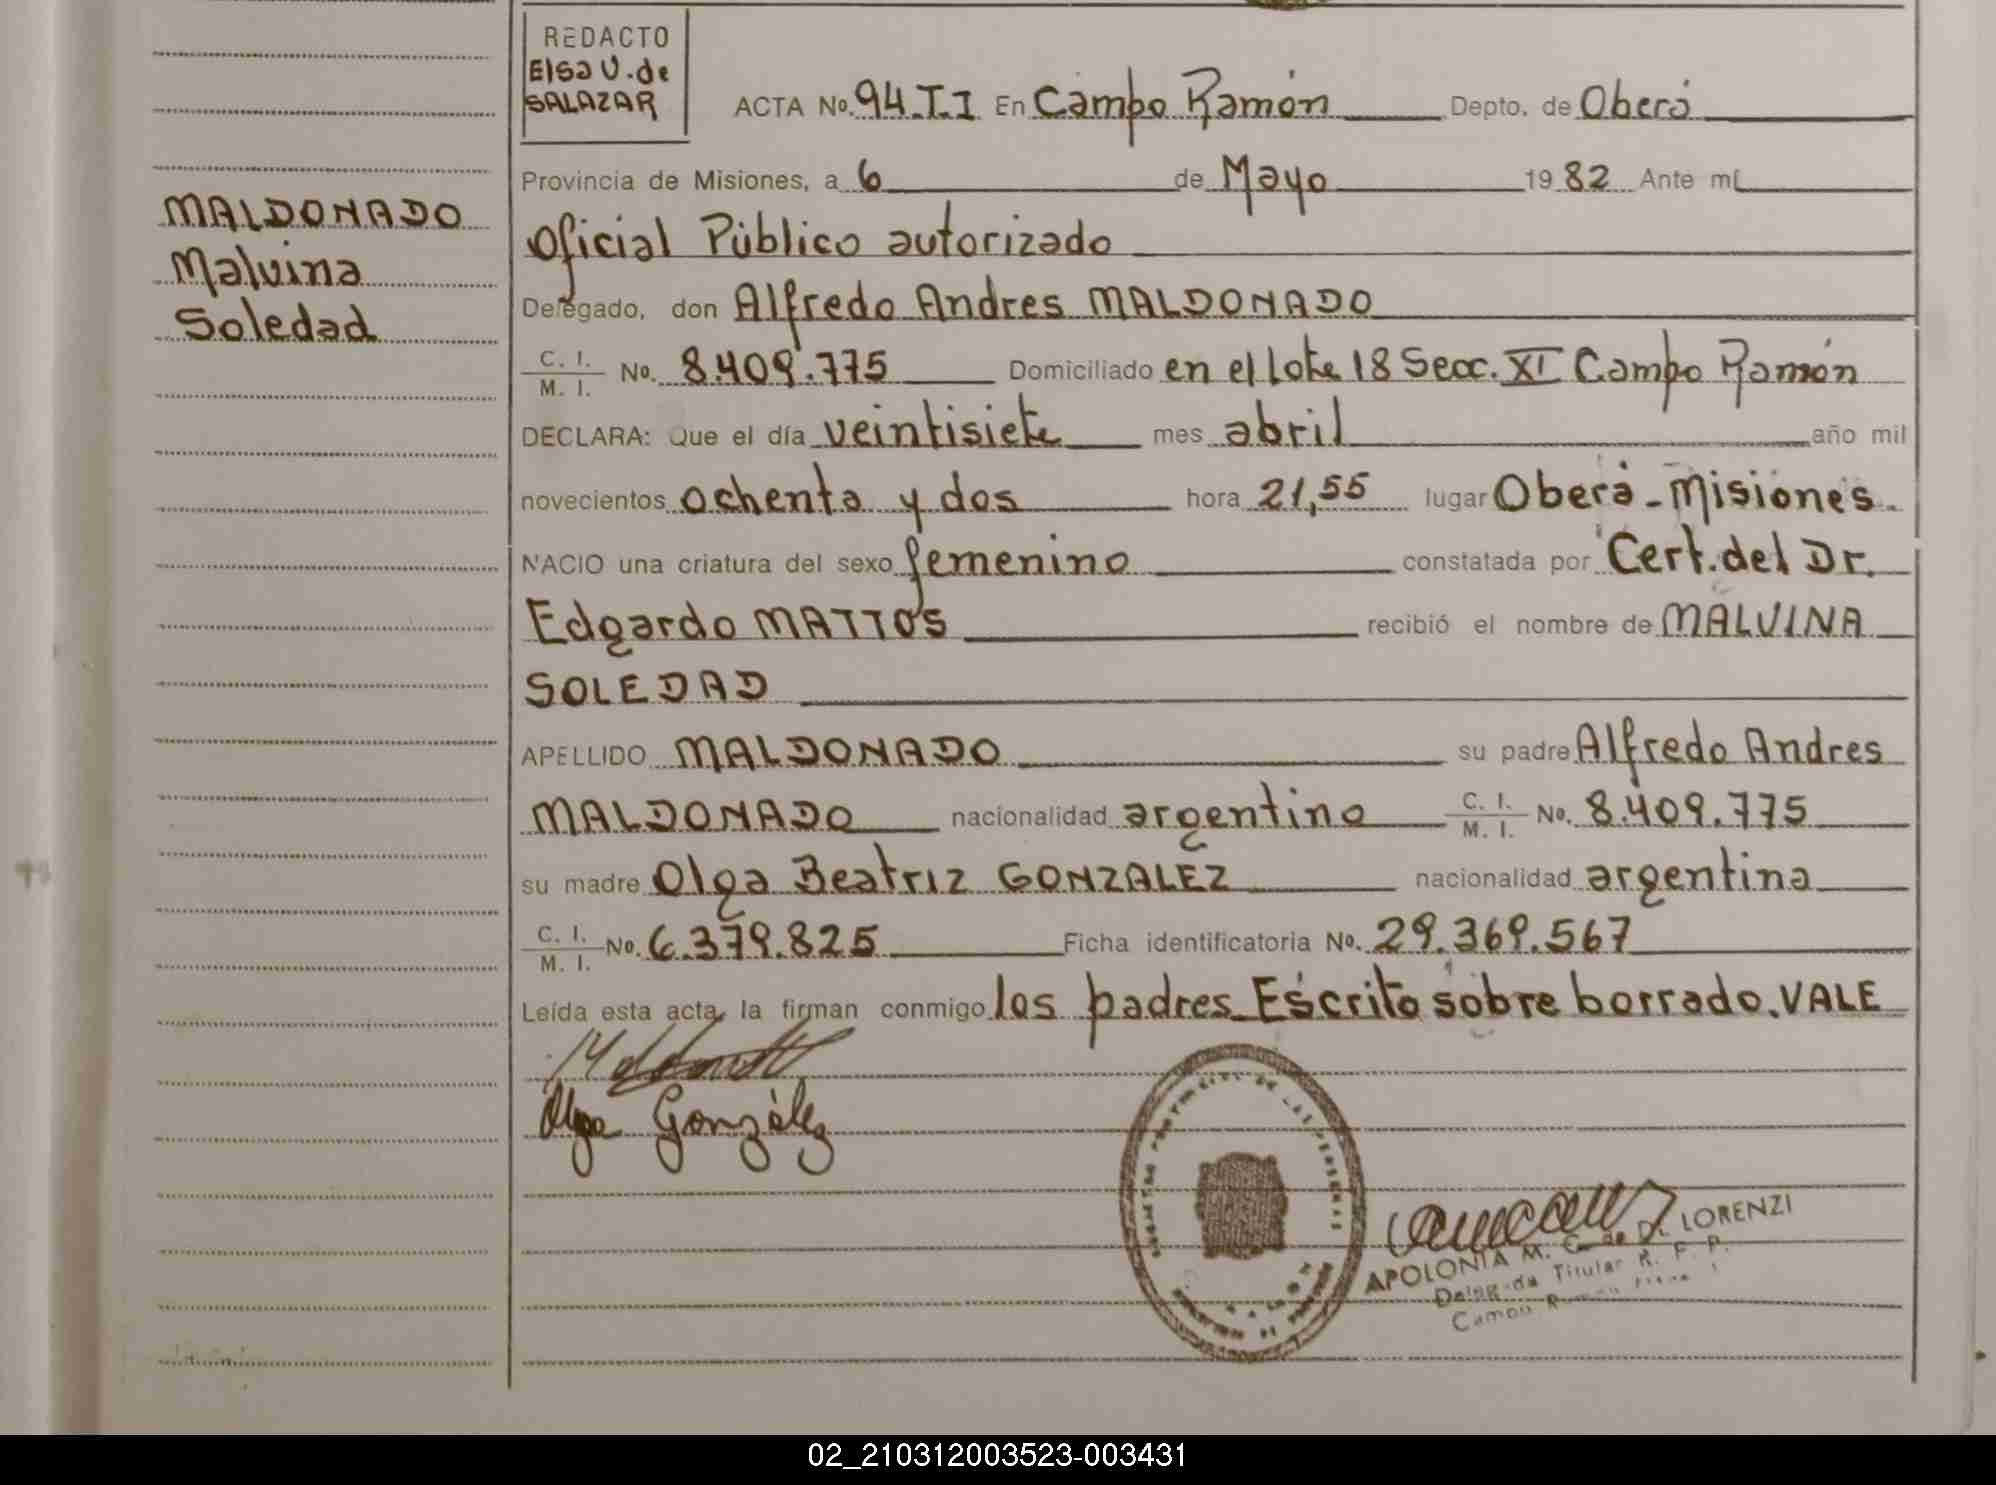 REDACTO
Elsa V. de
SALAZAR
ACTA No. 94.T.I En Campo Ramón Depto. de Oberá
Provincia de Misiones, a 6 de Mayo 1982 Ante mí
Oficial Público autorizado
Delegado, don Alfredo Andres MALDONADO
C. I. / M. I. No. 8.409.775 Domiciliado en el lote 18 Secc. XI Campo Ramón
DECLARA: Que el día veintisiete mes abril año mil
novecientos ochenta y dos hora 21,55 lugar Oberá - Misiones.
NACIO una criatura del sexo femenino constatada por Cert. del Dr.
Edgardo MATTOS recibió el nombre de MALVINA
SOLEDAD
APELLIDO MALDONADO su padre Alfredo Andres
MALDONADO nacionalidad argentino C. I. / M. I. No. 8.409.775
su madre Olga Beatriz GONZALEZ nacionalidad argentina
C. I. / M. I. No. 6.379.825 Ficha identificatoria No. 29.369.567
Leída esta acta, la firman conmigo los padres_Escrito sobre borrado. VALE
MALDONADO
Malvina
Soledad
Olga González
APOLONIA M. C. de D. LORENZI
Titular R. P.
02_210312003523-003431